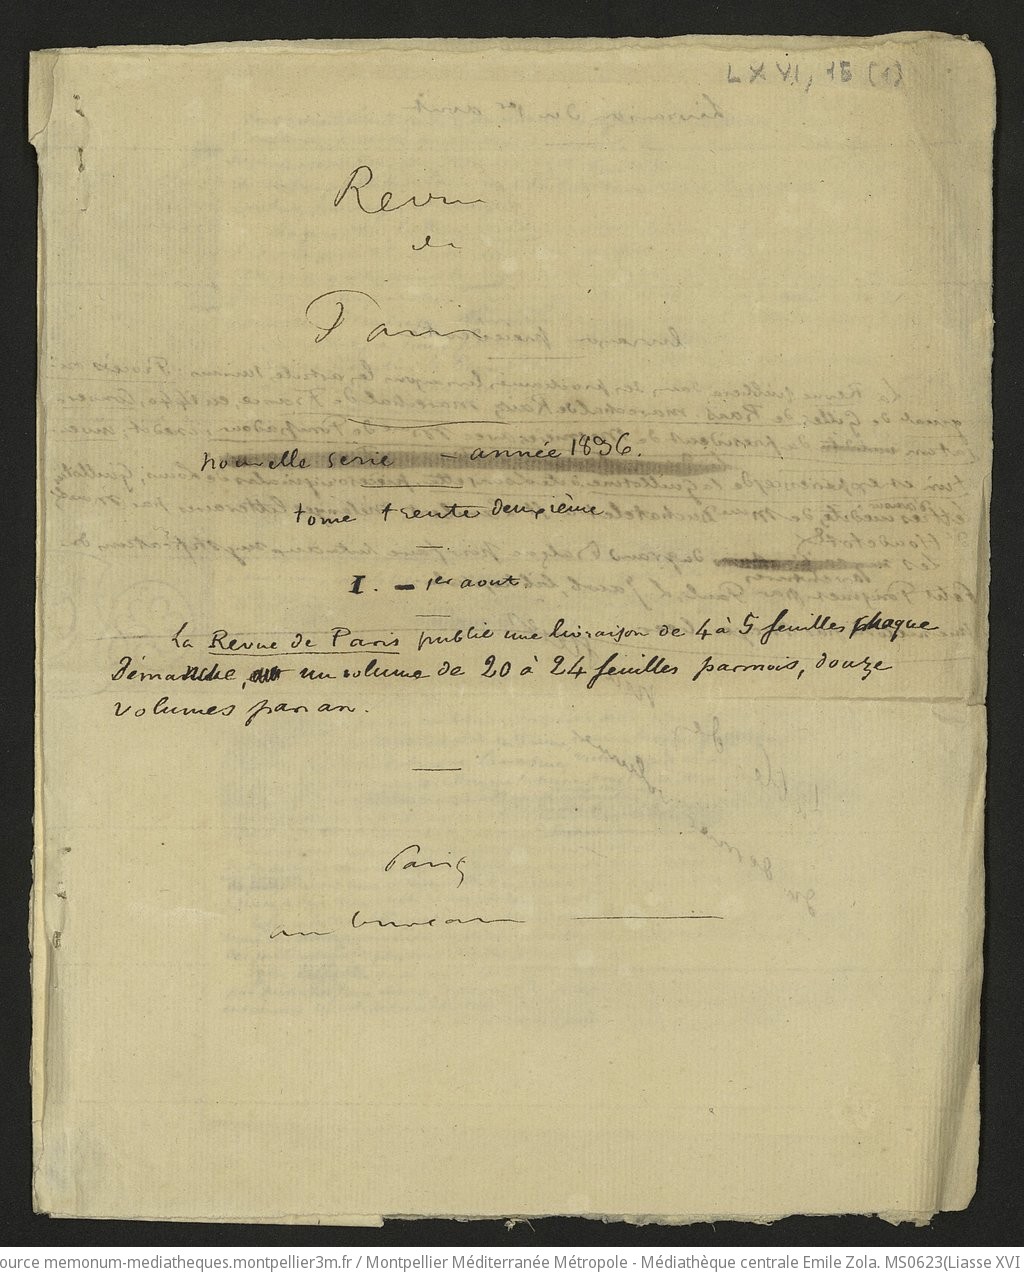 LXVI, 15 (1)
Revue
de
Paris
nouvelle série – année 1836.
tome trente deuxième
I. – 1er aout
La Revue de Paris publie une livraison de 4 à 5 feuilles chaque
dimanche, un volume de 20 à 24 feuilles par mois, douze
volumes par an.
Paris
au bureau
ource memonum-mediatheques.montpellier3m.fr / Montpellier Méditerranée Métropole - Médiathèque centrale Emile Zola. MS0623(Liasse XVI